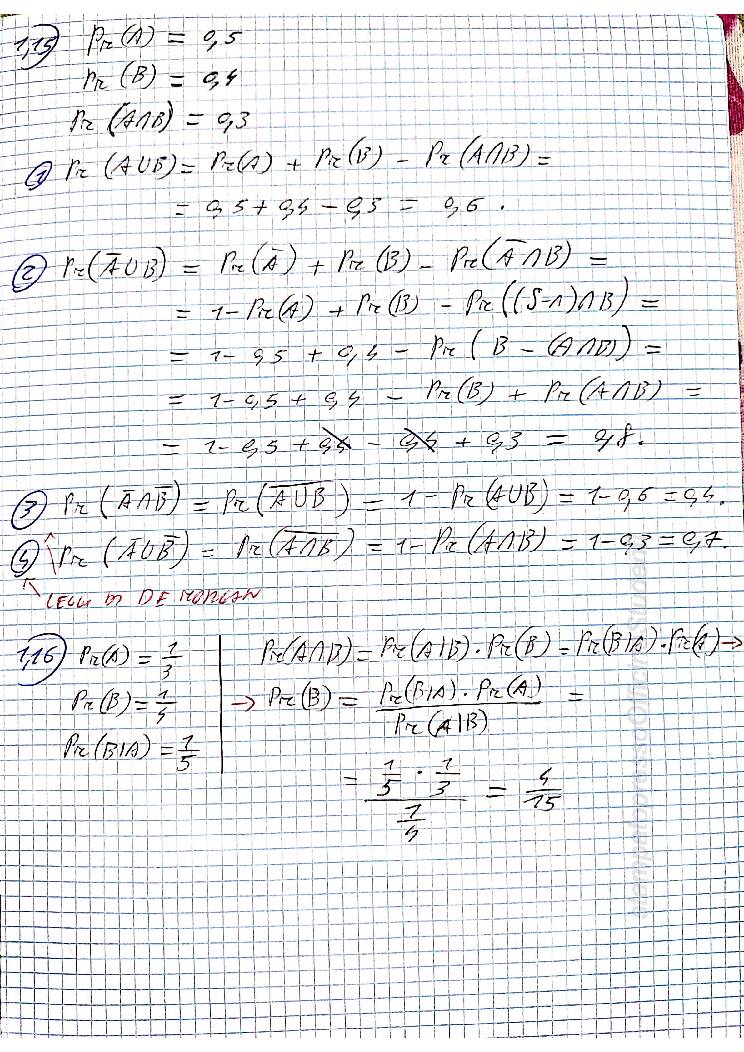 1,15) Pr(A) = 0,5
Pr(B) = 0,4
Pr(A∩B) = 0,3
① Pr(A∪B) = Pr(A) + Pr(B) - Pr(A∩B) =
= 0,5 + 0,4 - 0,3 = 0,6.
② Pr(A̅∪B) = Pr(A̅) + Pr(B) - Pr(A̅∩B) =
= 1 - Pr(A) + Pr(B) - Pr((S-A)∩B) =
= 1 - 0,5 + 0,4 - Pr(B - (A∩B)) =
= 1 - 0,5 + 0,4 - Pr(B) + Pr(A∩B) =
= 1 - 0,5 + 0,4 - 0,4 + 0,3 = 0,8.
③ Pr(A̅∩B̅) = Pr(A̅∪̅B̅) = 1 - Pr(A∪B) = 1 - 0,6 = 0,4.
④ Pr(A̅∪B̅) = Pr(A̅∩̅B̅) = 1 - Pr(A∩B) = 1 - 0,3 = 0,7.
LEGGI DI DE MORGAN
1,16) Pr(A) = 1/3
Pr(B) = 1/4
Pr(B|A) = 1/5
Pr(A∩B) = Pr(A|B) · Pr(B) = Pr(B|A) · Pr(A) →
→ Pr(B) = Pr(B|A) · Pr(A) / Pr(A|B) =
= 1/5 · 1/3 / 1/4 = 4/15